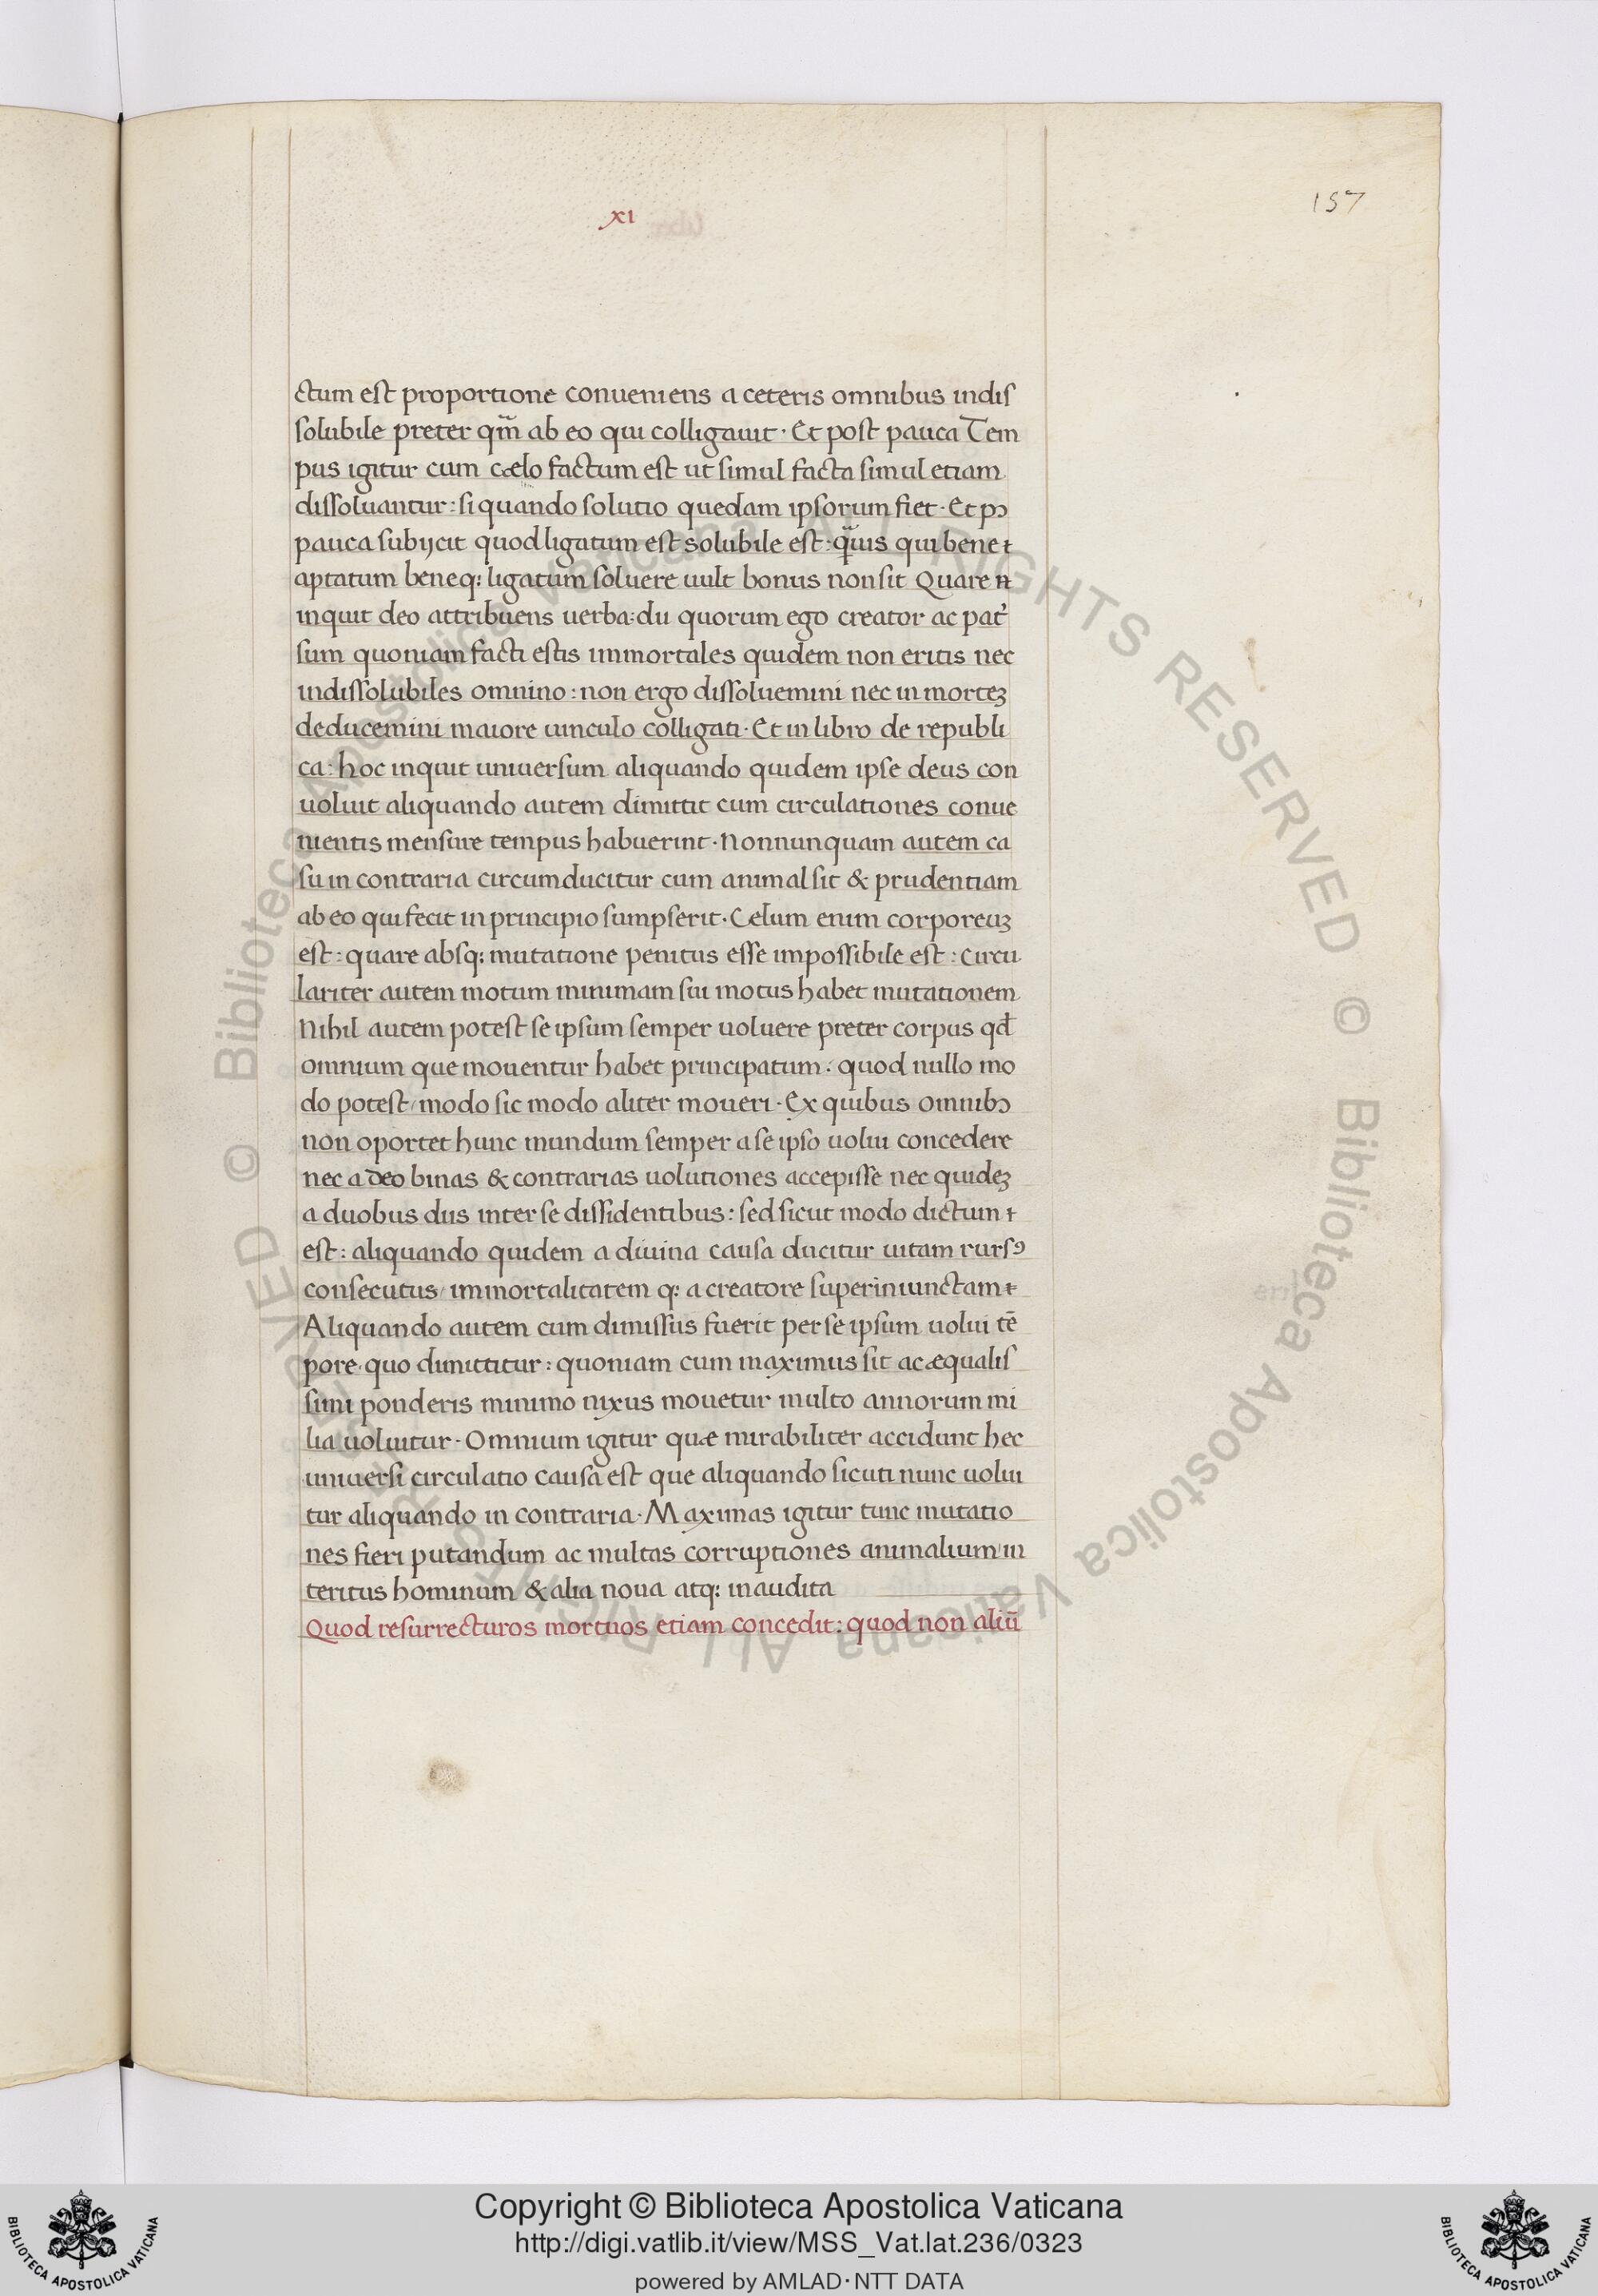 xi
157
ctum est proportione conueniens a ceteris omnibus indis
solubile preter qm̃ ab eo qui colligauit · Et post pauca Tem
pus igitur cum cælo factum est ut simul facta simul etiam
dissoluantur: si quando solutio quedam ipsorum fiet · Et pꝰ
pauca subijcit quod ligatum est solubile est: qᷓuis qui bene
aptatum beneq; ligatum soluere uult bonus non sit Quare
inquit deo attribuens uerba: dii quorum ego creator ac pat᷑
sum quoniam facti estis immortales quidem non eritis nec
indissolubiles omnino: non ergo dissoluemini nec in morteꝫ
deducemini maiore uinculo colligati · Et in libro de republi
ca: hoc inquit uniuersum aliquando quidem ipse deus con
uoluit aliquando autem dimittit cum circulationes conue
nientis mensure tempus habuerint · Nonnunquam autem ca
su in contraria circumducitur cum animal sit & prudentiam
ab eo qui fecit in principio sumpserit · Celum enim corporeuꝫ
est: quare absq; mutatione penitus esse impossibile est: Circu
lariter autem motum minimam sui motus habet mutationem
Nihil autem potest se ipsum semper uoluere preter corpus qđ
omnium que mouentur habet principatum: quod nullo mo
do potest/ modo sic modo aliter moueri · Ex quibus omnibꝰ
non oportet hunc mundum semper a se ipso uolui concedere
nec a deo binas & contrarias uolutiones accepisse nec quideꝫ
a duobus diis inter se dissidentibus: sed sicut modo dictum
est: aliquando quidem a diuina causa ducitur uitam rursꝰ
consecutus/ immortalitatem q; a creatore superiniunctam
Aliquando autem cum dimissus fuerit per se ipsum uolui tē
pore quo dimittitur: quoniam cum maximus sit ac æqualis
simi ponderis minimo nixus mouetur multo annorum mi
lia uoluitur · Omnium igitur quæ mirabiliter accidunt hec
uniuersi circulatio causa est que aliquando sicuti nunc uolui
tur aliquando in contraria · Maximas igitur tunc mutatio
nes fieri putandum ac multas corruptiones animalium in
teritus hominum & alia noua atq; inaudita
Quod resurrecturos mortuos etiam concedit: quod non aliū
© Biblioteca Apostolica Vaticana ALL RIGHTS RESERVED © Biblioteca Apostolica Vaticana ALL RIGHTS RESERVED
Copyright © Biblioteca Apostolica Vaticana
http://digi.vatlib.it/view/MSS_Vat.lat.236/0323
powered by AMLAD·NTT DATA
BIBLIOTECA APOSTOLICA VATICANA
BIBLIOTECA APOSTOLICA VATICANA